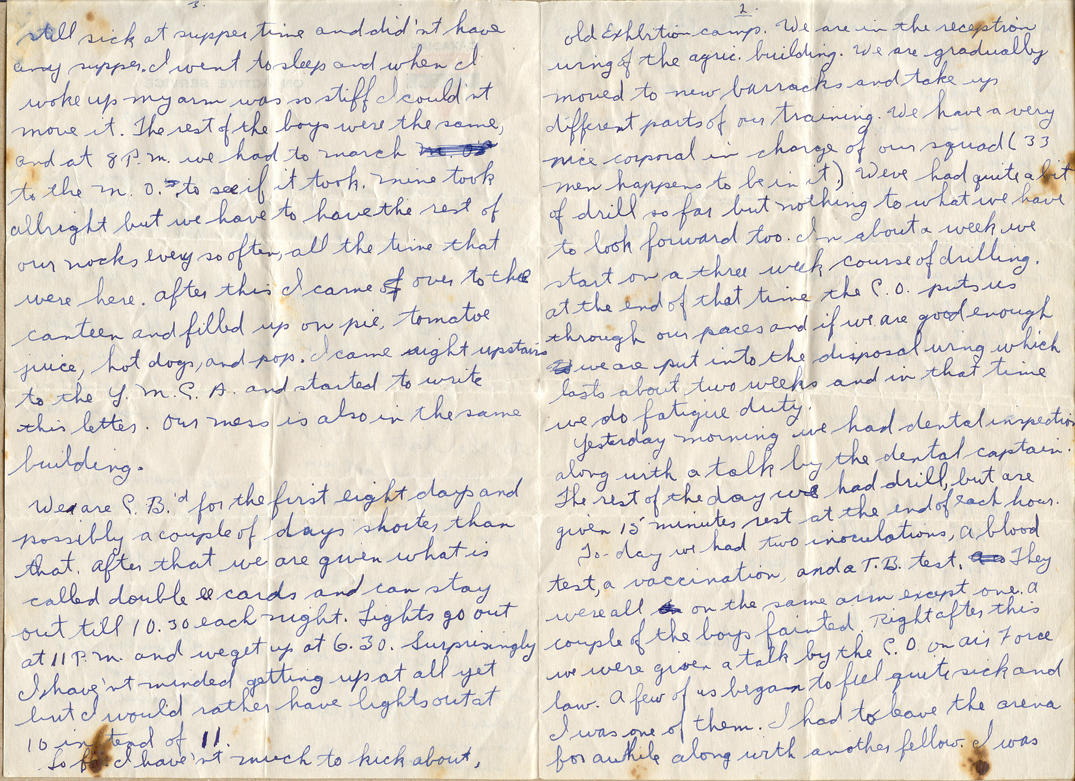 2.
old Exhibition camp. We are in the reception
wing of the agric. building. We are gradually
moved to new barracks and take up
different parts of our training. We have a very
nice corporal in charge of our squad (33
men happens to be in it) Weve had quite a bit
of drill so far but nothing to what we have
to look forward too. In about a week we
start on a three week course of drilling.
at the end of that time the C.O. puts us
through our paces and if we are good enough
we are put into the disposal wing which
lasts about two weeks and in that time
we do fatigue duty.
Yesterday morning we had dental inspection
along with a talk by the dental captain.
The rest of the day we had drill, but are
given 15 minutes rest at the end of each hour.
To-day we had two inoculations, a blood
test, a vaccination, and a T.B. test. They
were all on the same arm except one. a
couple of the boys fainted. Right after this
we were given a talk by the C.O on air Force
law. A few of us began to feel quite sick and
I was one of them. I had to leave the arena
for awhile along with another fellow. I was
3.
still sick at supper time and did'nt have
any supper. I went to sleep and when I
woke up my arm was so stiff I could'nt
move it. The rest of the boys were the same,
and at 8 P.M. we had to march
to the M.O.s to see if it took. Mine took
allright but we have to have the rest of
our nocks every so often, all the time that
were here. After this I came over to the
canteen and filled up on pie, tomatoe
juice, hot dogs, and pop. I came right upstairs
to the Y.M.C.A. and started to write
this letter. Our mess is also in the same
building.
We are C.B.'d for the first eight days and
possibly a couple of days shorter than
that. After that we are given what is
called double cards and can stay
out till 10.30 each night. Lights go out
at 11 P.M. and we get up at 6.30. Surprisingly
I have'nt minded getting up at all yet
but I would rather have lights out at
10 instead of 11.
So far I have'nt much to kick about,